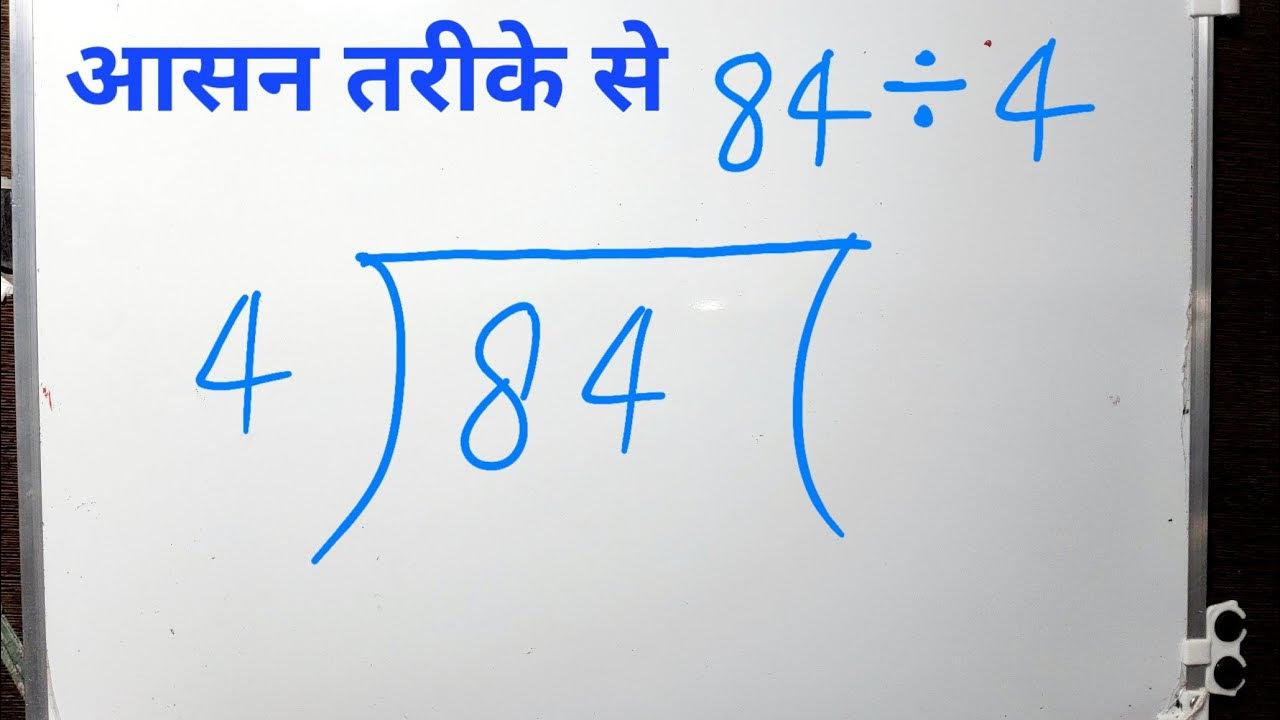 आसन तरीके से 84 ÷ 4
4 ) 84 (